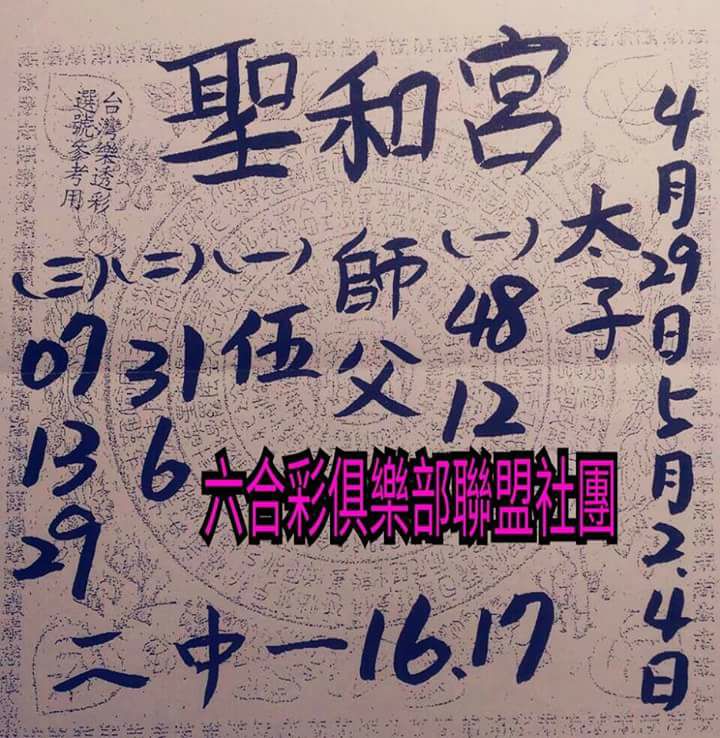 聖和宮
台灣樂透彩
選號參考用
4月29日5月2.4日
太子
(一)
48
12
師父
(一)
伍
(二)
31
6
(三)
07
13
29
六合彩俱樂部聯盟社團
二中一16.17